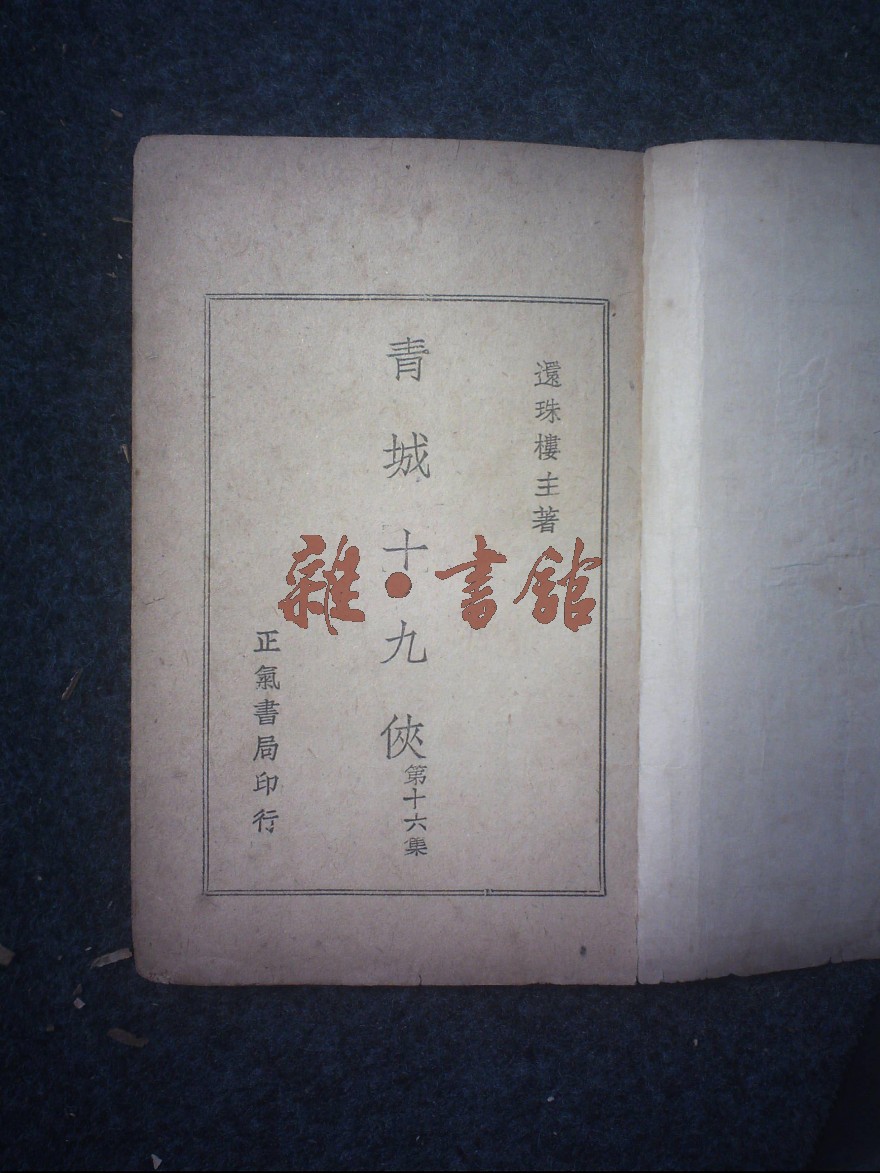 還珠樓主著
青城十九俠
第十六集
正氣書局印行
雜·書館